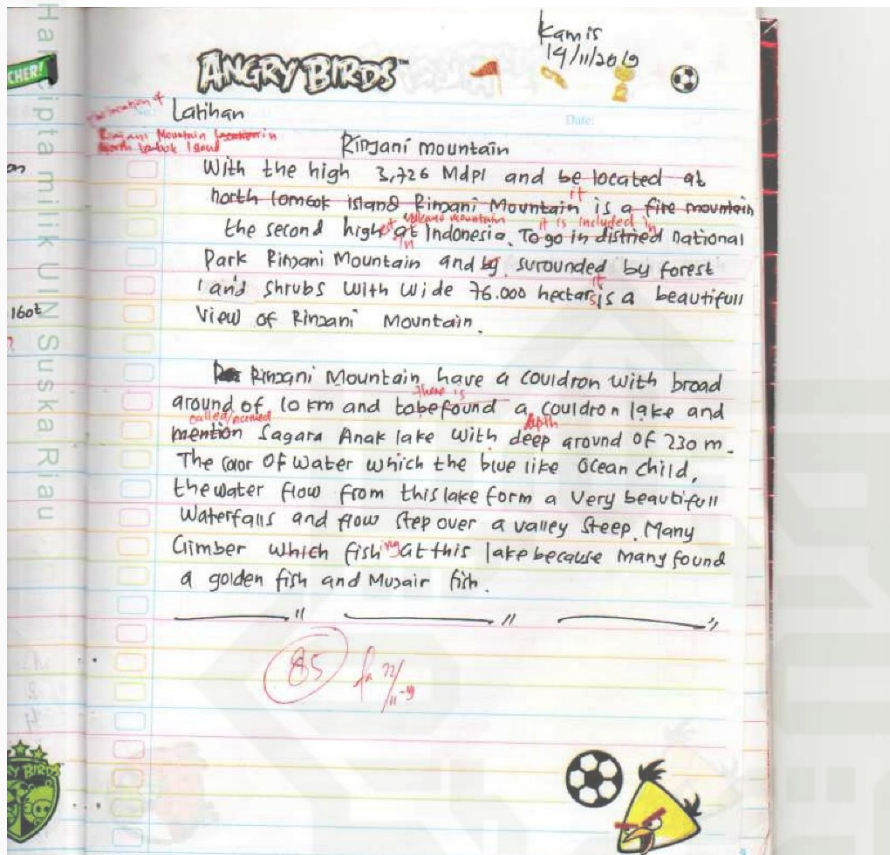 Hak cipta milik UIN Suska Riau
CHER!
160t
Kamis
14/11/2019
ANGRY BIRDS
No.:
Date:
Latihan
the location of
Rinjani Mountain location in
North Lombok Island
Rinjani mountain
With the high 3,726 Mdpl and be located at
north lomcok island Rinjani Mountain it is a fire mountain
volcano mountain it is included in
the second highest at in Indonesia. To go in distried national
Park Rinjani Mountain and by surounded by forest
it
and shrubs with wide 76.000 hectars is a beautifull
View of Rinjani Mountain.
Rinjani Mountain have a couldron with broad
there is
around of 10 km and tobefound a couldron lake and
called/named depth
mention Sagara Anak lake with deep around of 230 m.
The color of water which the blue like Ocean child,
the water flow from this lake form a very beautifull
Waterfalls and flow step over a valley steep. Many
Climber which fishing at this lake because many found
a golden fish and Mujair fish.
85
22/11-19